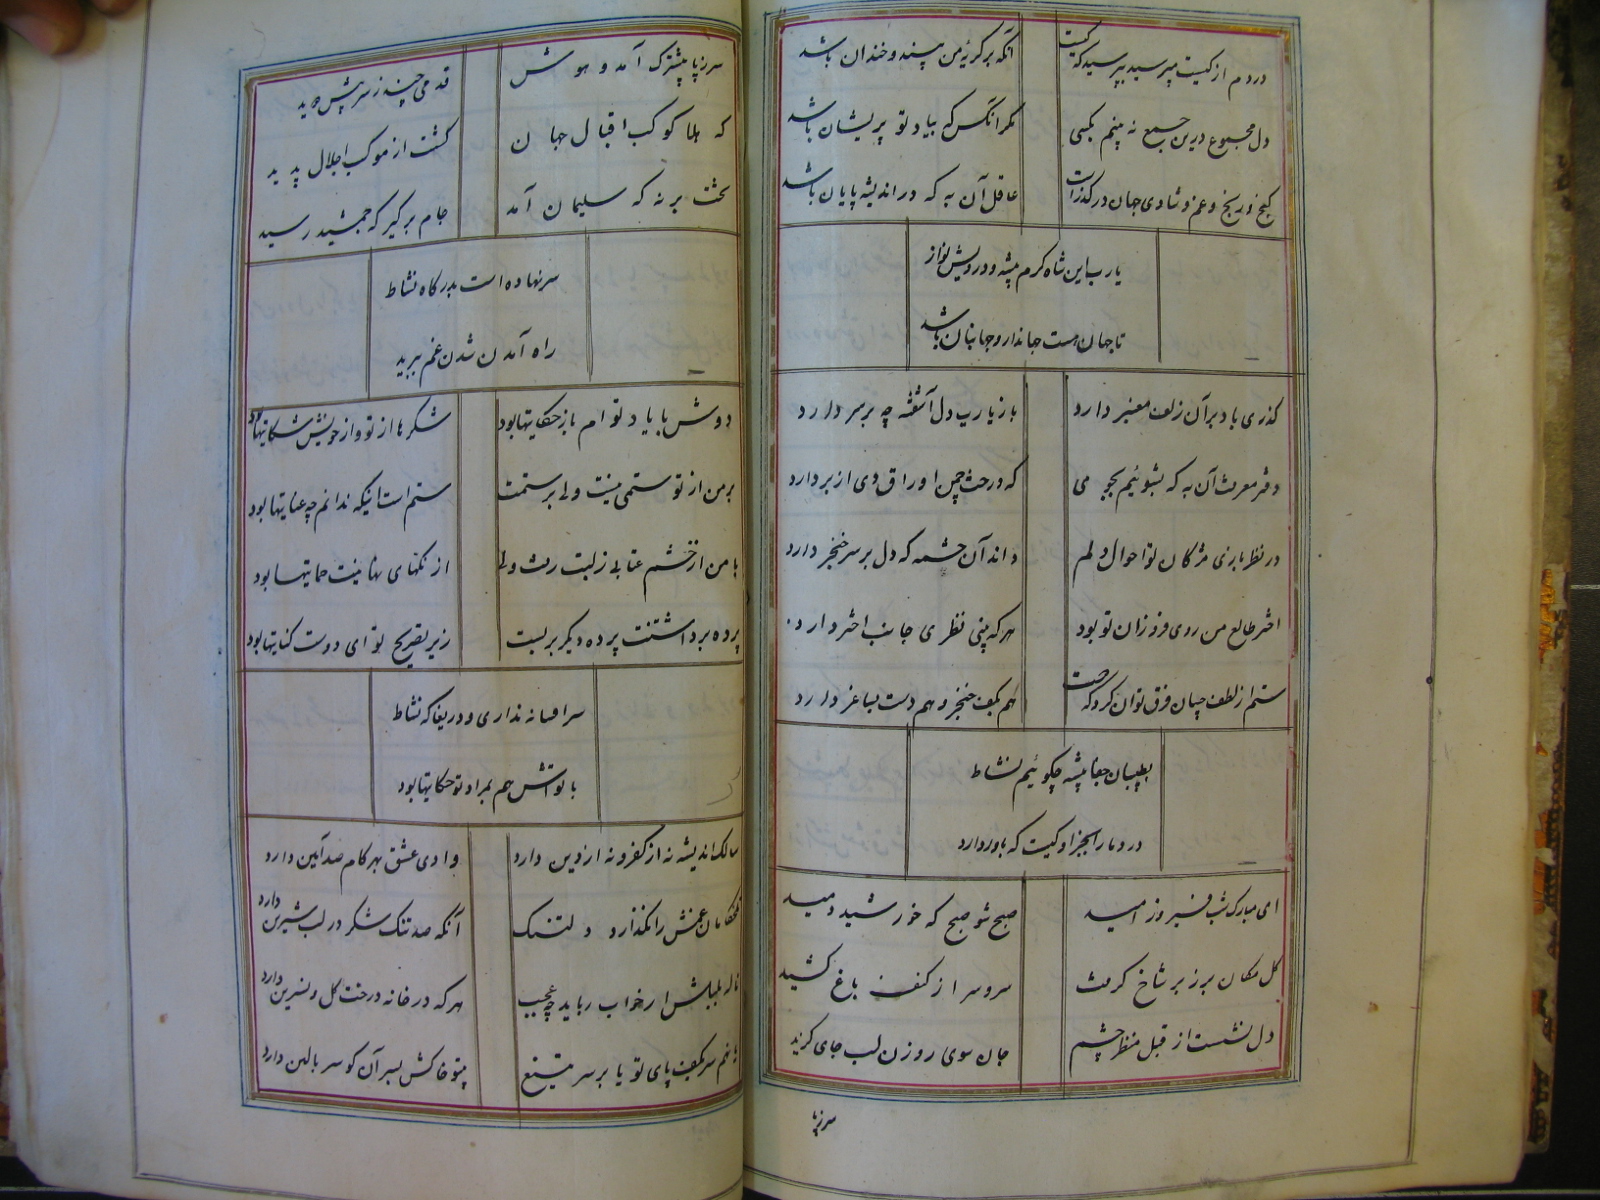 دردم از کیست مپرسید بپرسید که کیست
آنکه بر گریهٔ من بیند و خندان باشد
دل مجموع درین جمع نه بینم بکسی
مگر آنکس که بیاد تو پریشان باشد
گنج و رنج و غم و شادی جهان در گذرست
عاقل آن به که در اندیشه پایان باشد
یارب این شاه کرم پیشه و درویش نواز
تا جهان هست جهاندار و جهانبان باشد
گذری باد بر آن زلف معنبر دارد
باز یارب دل آشفته چه بر سر دارد
دفتر معرفت آن به که بشوئیم بجوی می
که درخت چمن اوراق دی از بر دارد
در نظر بازی مژگان تو احوال دلم
داند آن چشمه که دل بر سر خنجر دارد
اختر طالع من روی فروزان تو بود
هر که بینی نظری جانب اختر دارد
ستم از لطف چسان فرق توان کرد که دوست
هم بکف خنجر و هم دست بساغر دارد
بطبیبان جفا پیشه چگوئیم نشاط
درد ما را بجز او کیست که باور دارد
ای مبارک شب فیروز امید
صبح شو صبح که خورشید دمید
گل مکان بر زبر شاخ گرفت
سرو سر از کنف باغ کشید
دل نشست از قبل منظر چشم
جان سوی روزن لب جای گزید
سر ز پا
سر ز پا پیشترک آمد و هوش
قدمی چند ز سر پیش دوید
که هلا کوکب اقبال جهان
گشت از موکب اجلال پدید
تخت بر نه که سلیمان آمد
جام بر گیر که جمشید رسید
سر نهاده است بدرگاه نشاط
راه آمد شدن غم ببرید
دوش با یاد توام باز حکایتها بود
شکرها از تو و از خویش شکایتها بود
بر من از تو ستمی نیست ولی بر ستمت
ستم است اینکه ندانم چه عنایتها بود
با من از خشم عتابی ز لبت رفت ولی
از نگههای نهانیت حمایتها بود
پرده برداشتنت پرده دیگر بر بست
زیر تصریح تو ای دوست کنایتها بود
سر افسانه نداری و دریغا که نشاط
با تواش هم بمراد تو حکایتها بود
سالک اندیشه نه از کفر و نه از دین دارد
وادی عشق بهر گام صد آیین دارد
تلخکامان غمش را نگذارد دلتنگ
آنکه صد تنگ شکر در لب شیرین دارد
ناله بلبلش ار خواب رباید چه عجب
هر که در خانه درخت گل و نسرین دارد
مانم سر بکف پای تو یا بر سر تیغ
بیتو خاکش بسر آن کو سر بالین دارد